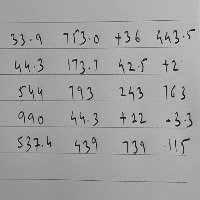 33.9 753.0 +36 443.5
44.3 173.1 42.5 +2
544 793 243 763
990 44.3 +22 +3.3
537.4 439 739 .115